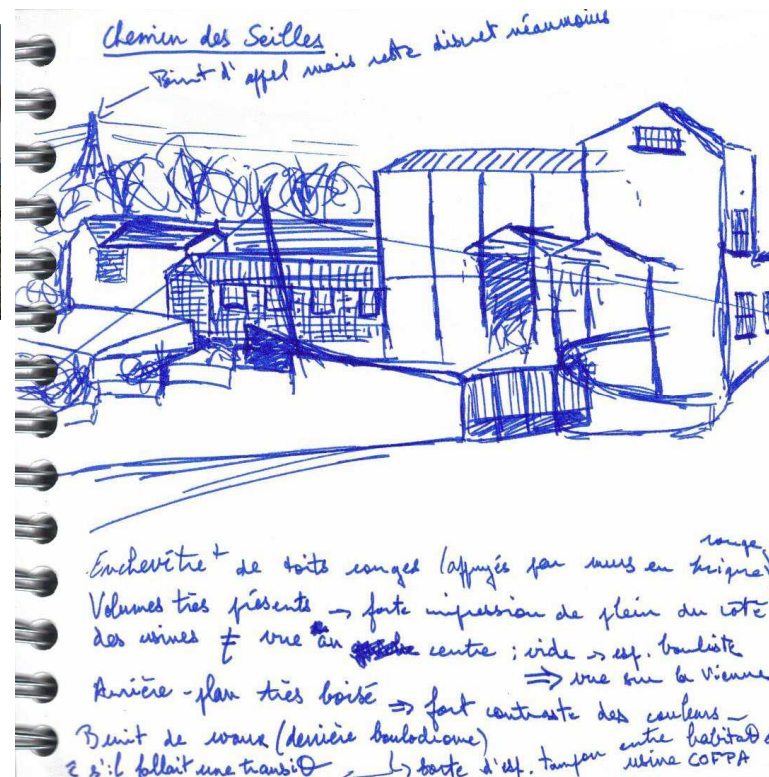 Chemin des Seilles
Point d'appel mais reste discret néanmoins
Enchevêtrt de toits rouges (appuyés par murs en brique rouge)
Volumes très présents → forte impression de plein du côté
des usines ≠ vue au centre ; vide → esp. bouliste
⇒ vue sur la Vienne
Arrière-plan très boisé ⇒ fort contraste des couleurs
(derrière boulodrome)
s'il fallait une
↳ sorte d'esp. tampon entre habitat
usine COFPA